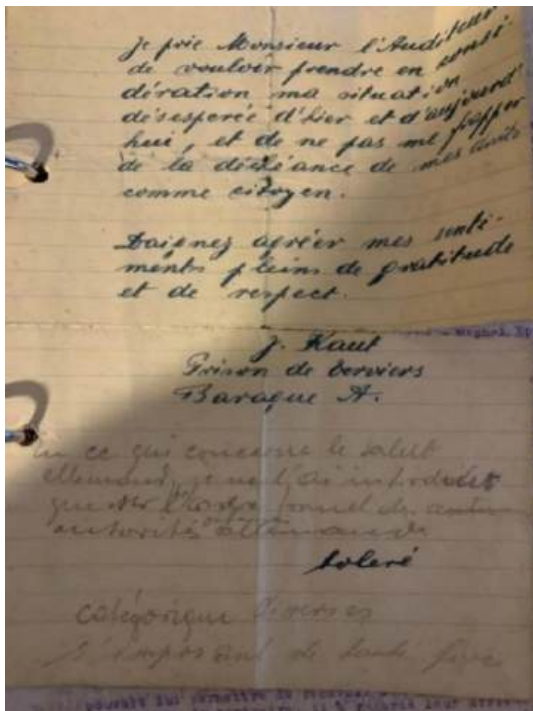 Je prie Monsieur l'Auditeur
de vouloir prendre en consi-
dération ma situation
désespérée d'hier et d'aujourd'
hui, et de ne pas me frapper
de la déchéance de mes droits
comme citoyen.
Daignez agréer mes senti-
ments pleins de gratitude
et de respect.
J. Kaut
Prison de Verviers
Baraque A.
En ce qui concerne le salut
allemand, je ne l'ai introduit
que sur l'ordre formel des
autorités allemandes
toleré
catégorique diverses
s'imposant de toute force